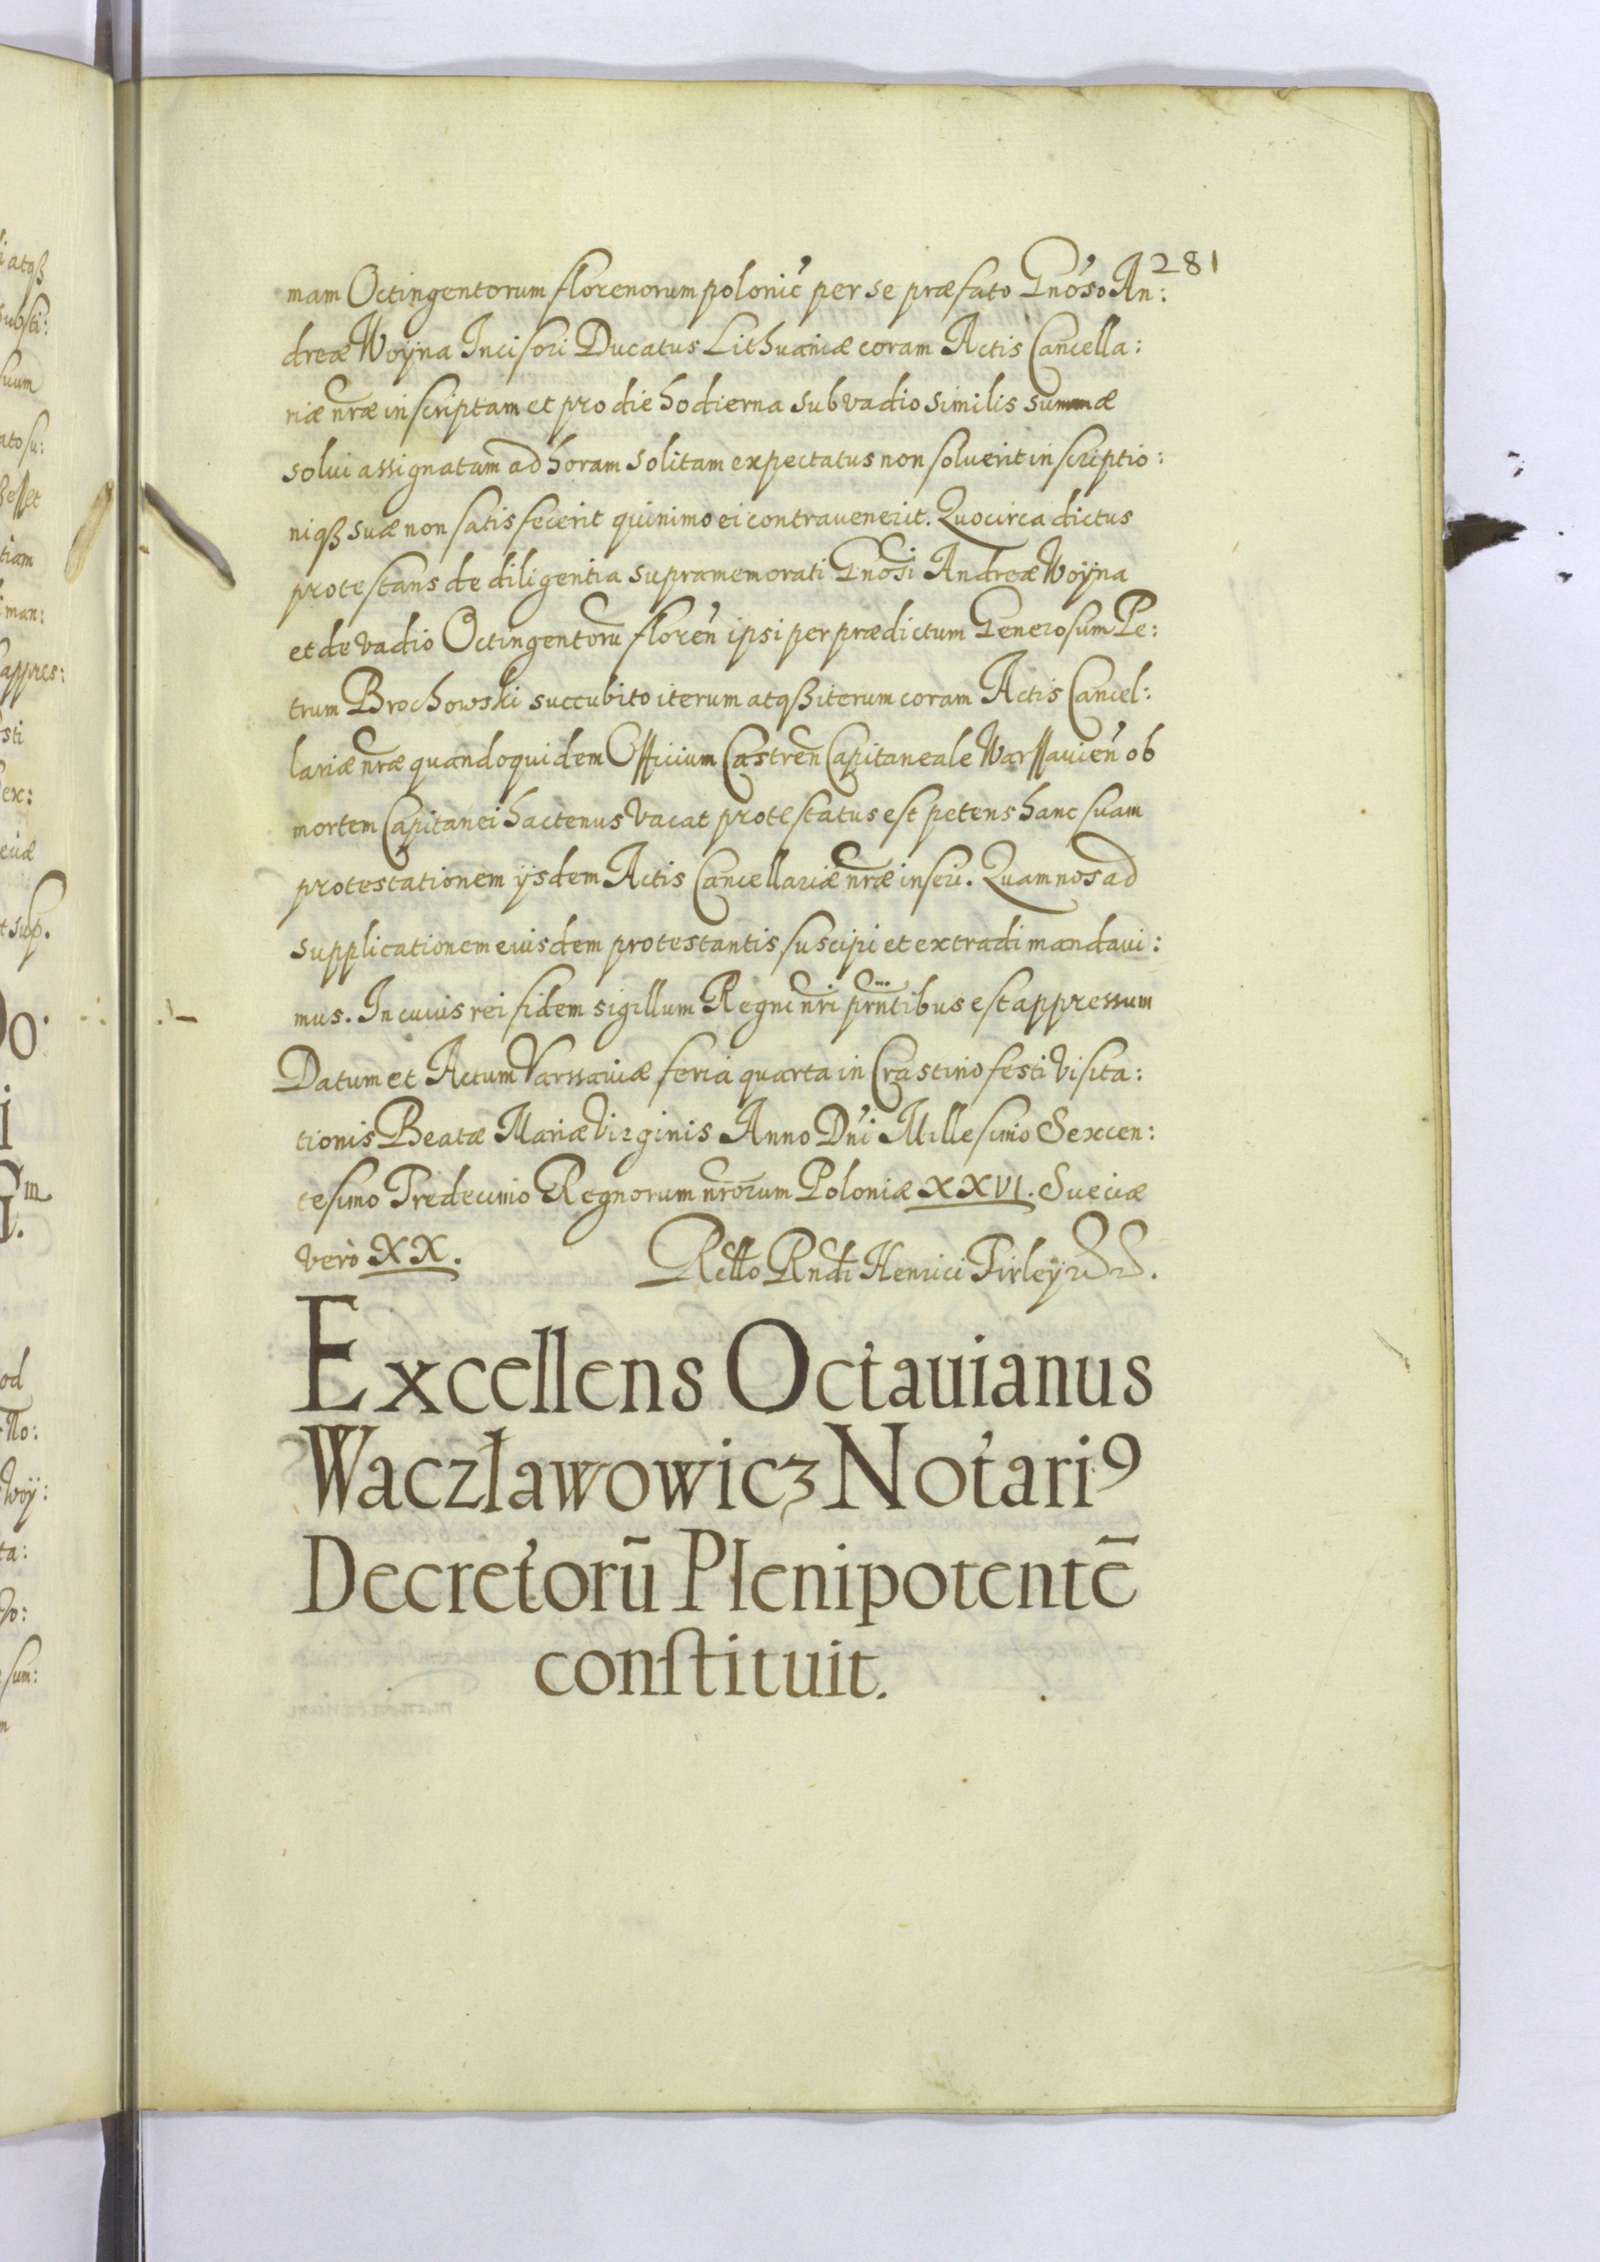 281
mam Octingentorum florenorum polonic̃ per se præfato Gnoso An:
dreæ Woyna Incisori Ducatus Lithuaniæ coram Actis Cancella:
riæ nr̃æ inscriptam et pro die hodierna sub vadio similis summæ
solui assignatam ad horam solitam expectatus non soluerit inscriptio:
niqß suæ non satisfecerit quinimo ei contrauenerit. Quocirca dictus
protestans de diligentia supramemorati Gnosi Andreæ Woyna
et de vadio Octingentorũ floreñ ipsi per prædictum Generosum Pe:
trum Brochowski succubito iterum atqß iterum coram Actis Cancel:
lariæ nr̃æ quandoquidem Officium Castreñ Capitaneale Warssauieñ ob
mortem Capitanei hactenus vacat protestatus est petens hanc suam
protestationem ijsdem Actis Cancellariæ nr̃æ inseri. Quam nos ad
supplicationem eiusdem protestantis suscipi et extradi mandaui:
mus. In cuius rei fidem sigillum Regni nr̃i prñtibus est appressum
Datum et Actum Varssauiæ feria quarta in Crastino festi Visita:
tionis Beatæ Mariæ Virginis Anno Dñi Millesimo Sexcen:
tesimo Tredecimo Regnorum nr̃orum Poloniæ XXVI. Sueciæ
vero XX.
Rello Rndi Henrici Firley
Excellens Octauianus
Waczławowicz Notari9
Decretorũ Plenipotentẽ
constituit.